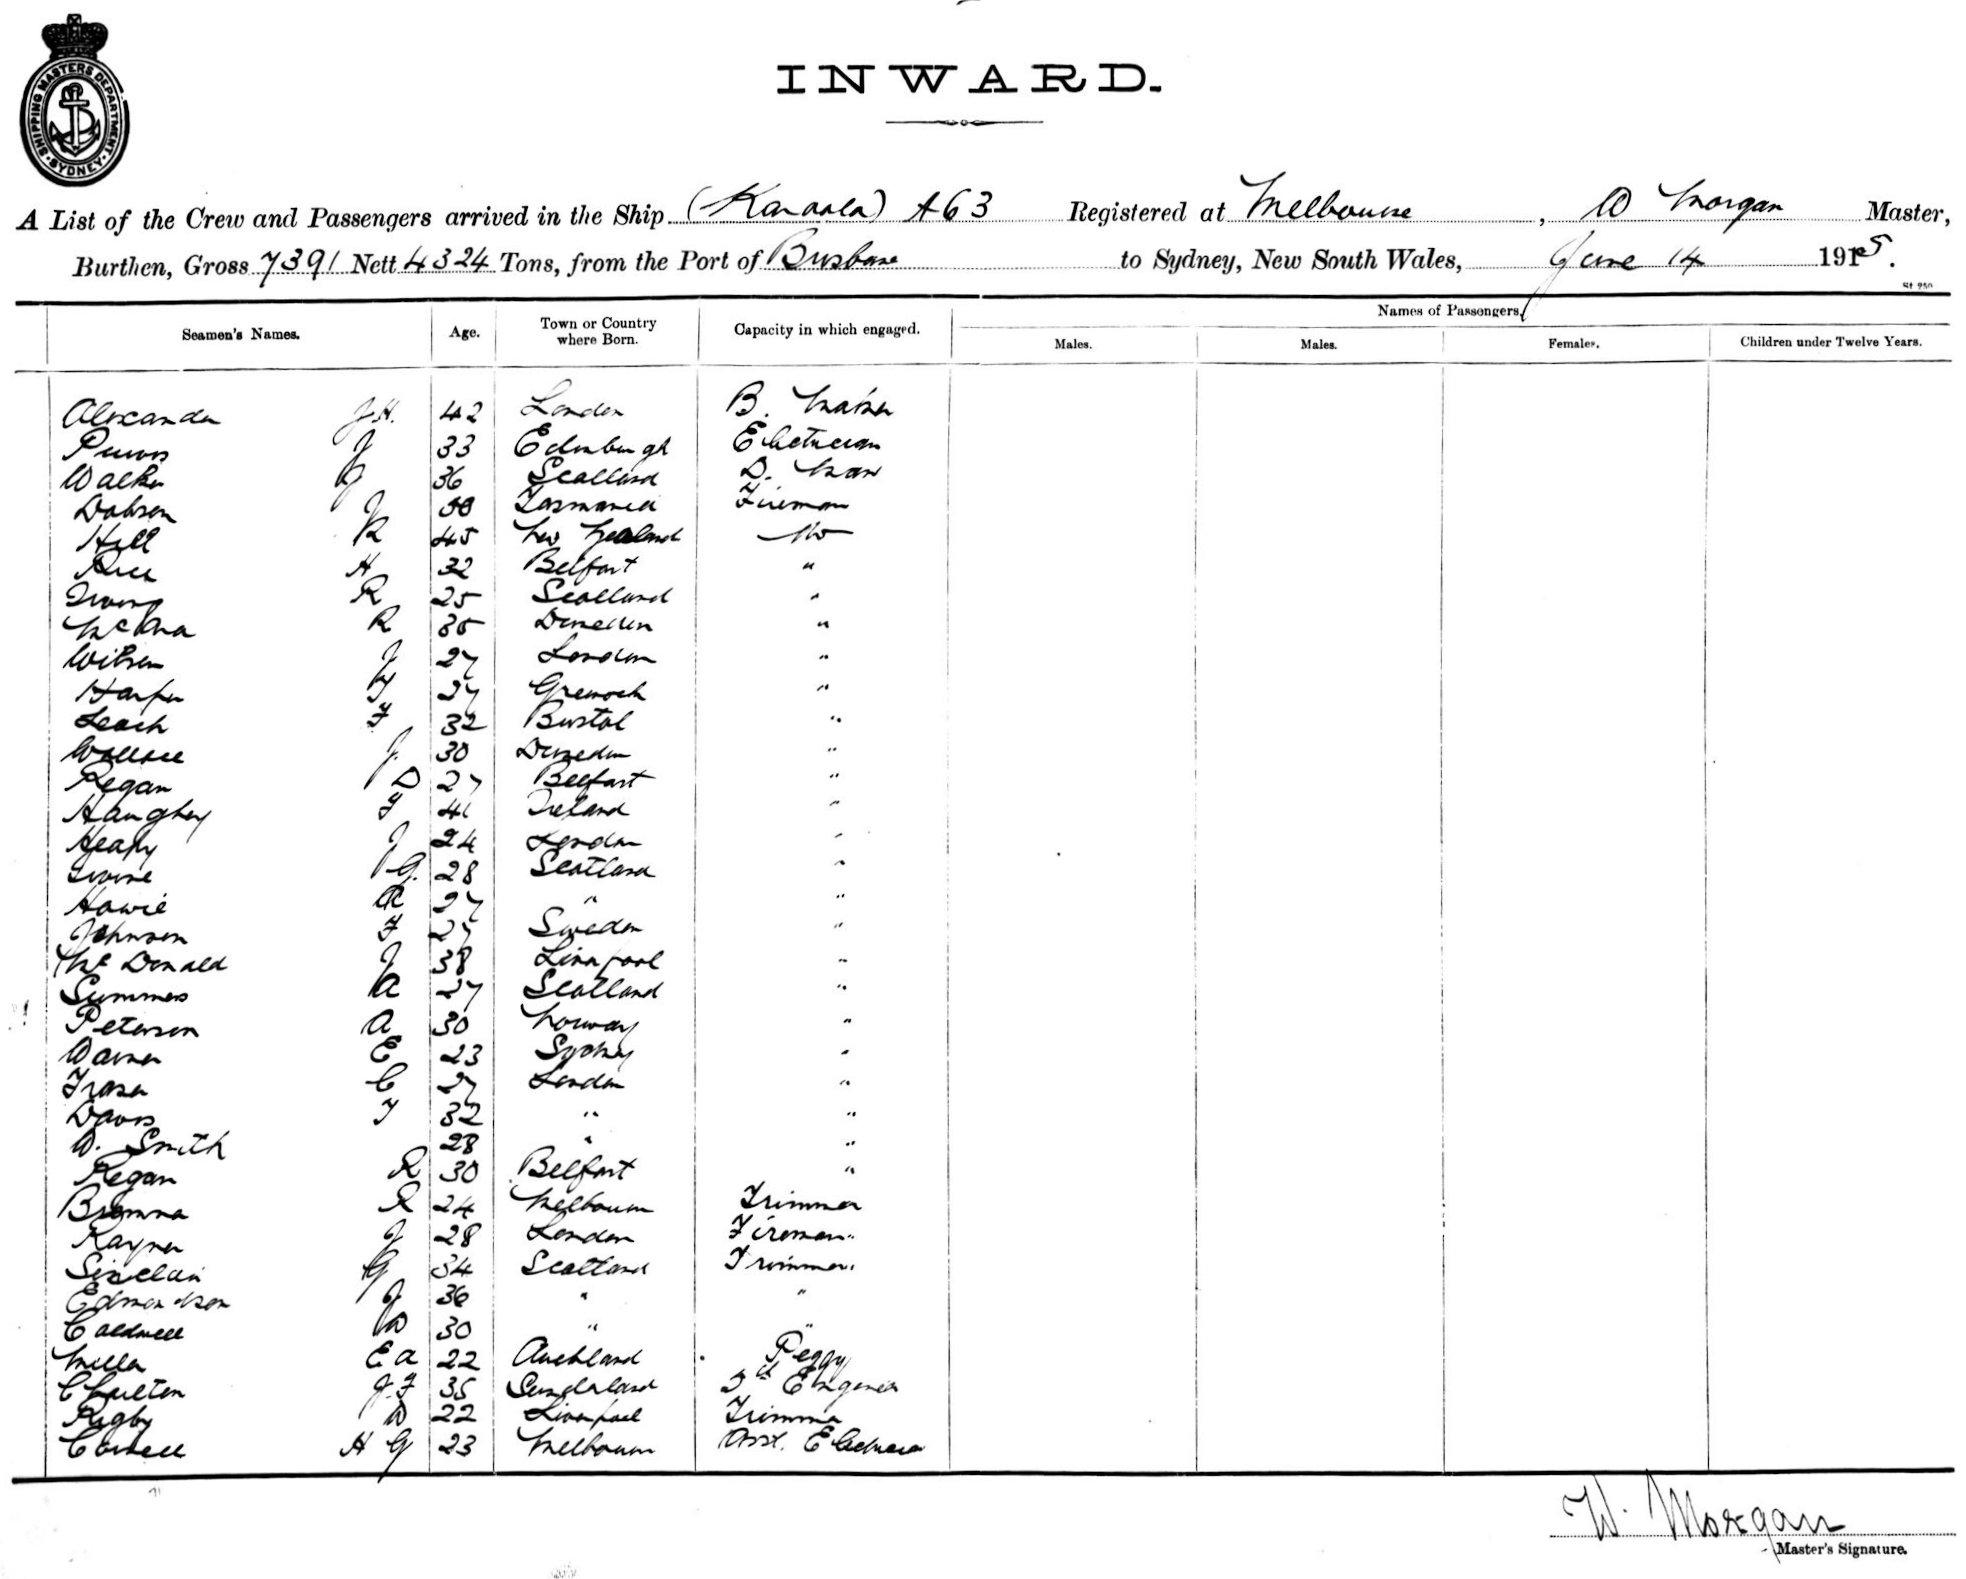 SHIPPING MASTERS DEPARTMENT · SYDNEY ·
INWARD.
A List of the Crew and Passengers arrived in the Ship (Karoola) A63 Registered at Melbourne, W Morgan Master,
Burthen, Gross 7391 Nett 4324 Tons, from the Port of Brisbane to Sydney, New South Wales, June 14 1915.
Names of Passengers
Seamen's Names. Age. Town or Country where Born. Capacity in which engaged. Males. Males. Females. Children under Twelve Years.
Alexander J.H. 42 London B. Maker
Purvis J 33 Edinburgh Electrician
Walker J 36 Scotland D. Man
Dobson J Tasmania Fireman
Hill R 45 New Zealand
Rice H 32 Belfast "
Irving R 25 Scotland "
R 35 Dunedin "
Wilson J 27 London "
Harper T 27 Greenock "
Leach F 32 Bristol "
Wallace J. 30 Dunedin "
Regan D 27 Belfast "
Haughey F 41 Ireland "
Heapy J 24 London "
Irvine G. 28 Scotland "
Howie R 27 " "
Johnson F 27 Sweden "
McDonald J 38 Liverpool "
Summers A 27 Scotland "
Peterson A 30 Norway "
Warner E 23 Sydney "
Fraser C 27 London "
Davis T 32 " "
W. Smith 28 " "
Regan R 30 Belfast "
Bremner R 24 Melbourne Trimmer
Rayner J 28 London Fireman
Sinclair G 34 Scotland Trimmer
Edmondson J 36 " "
Caldwell W 30 " "
Miller E A 22 Auckland Peggy
Charlton J.F 35 Sunderland 5th Engineer
Rigby W 22 Liverpool Trimmer
H G 23 Melbourne Asst. Electrician
W. Morgan
Master's Signature.